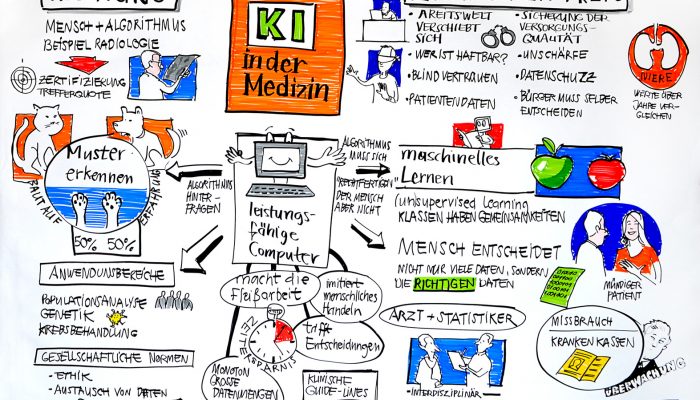 KI
in der
Medizin
MENSCH + ALGORITHMUS
BEISPIEL RADIOLOGIE
ZERTIFIZIERUNG
TREFFERQUOTE
Muster
erkennen
BAUT AUF
ERFAHRUNG
50% 50%
ANWENDUNSBEREICHE
POPULATIONSANALYSE
GENETIK
KREBSBEHANDLUNG
GESELLSCHAFTLICHE NORMEN
- ETHIK
- AUSTAUSCH VON DATEN
ALGORITHMUS
HINTER-
FRAGEN
leistungs-
fähige
Computer
macht die
Fleißarbeit
imitiert
menschliches
Handeln
trifft
Entscheidungen
ZEITERSPARNIS
MONOTON
GROSSE
DATENMENGEN
KLINISCHE
GUIDE-LINES
ALGORITHMUS
MUSS SICH
"RECHTFERTIGEN"
DER MENSCH
ABER NICHT
• AREITSWELT
VERSCHIEBT
SICH
• WER IST HAFTBAR?
• BLIND VERTRAUEN
• PATIENTENDATEN
• SICHERUNG DER
VERSORGUNGS-
QUALITÄT
• UNSCHÄRFE
• DATENSCHUTZ
• BÜRGER MUSS SELBER
ENTSCHEIDEN
NIERE
WERTE ÜBER
JAHRE VER-
GLEICHEN
maschinelles
Lernen
(un)supervised learning
KLASSEN HABEN GEMEINSAMKEITEN
MENSCH ENTSCHEIDET
NICHT NUR VIELE DATEN, SONDERN
DIE RICHTIGEN DATEN
MÜNDIGER
PATIENT
ARZT + STATISTIKER
- INTERDISZIPLINÄR -
MISSBRAUCH
KRANKENKASSEN
ÜBERWACHUNG